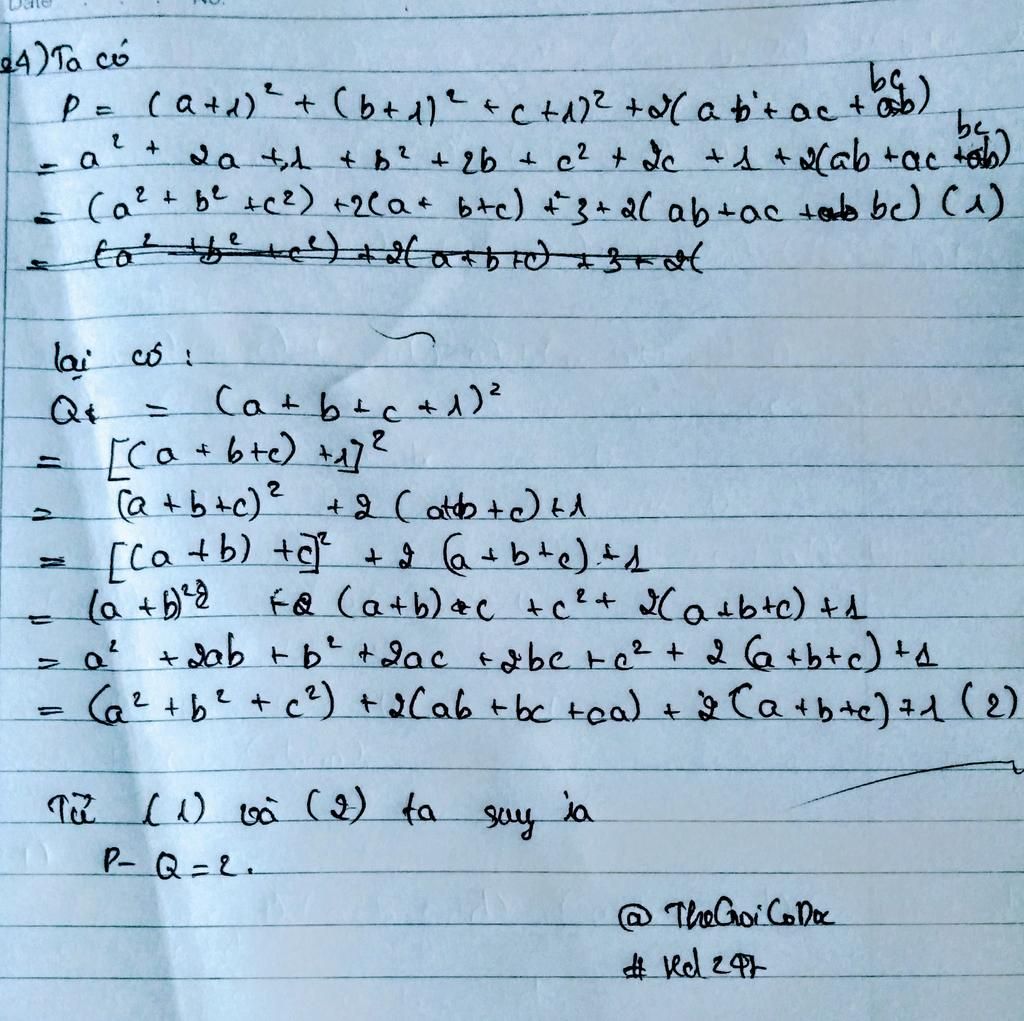 Date No.
24) Ta có
P = (a+1)² + (b+1)² + c+1)² + 2(ab + ac + bc)
= a² + 2a + 1 + b² + 2b + c² + 2c + 1 + 2(ab + ac + bc)
= (a² + b² + c²) + 2(a + b+c) + 3 + 2(ab + ac + bc) (1)
= (a² + b² + c²) + 2(a+b+c) + 3 + 2(
lại có :
Q = (a + b + c + 1)²
= [(a + b+c) +1]²
= (a + b+c)² + 2 (a+b + c) + 1
= [(a + b) + c]² + 2 (a + b + c) + 1
= (a + b)² + 2 (a+b) c + c² + 2(a+b+c) + 1
= a² + 2ab + b² + 2ac + 2bc + c² + 2 (a+b+c) + 1
= (a² + b² + c²) + 2(ab + bc + ca) + 2 (a + b+c) + 1 (2)
Từ (1) và (2) ta suy ra
P- Q = 2.
@ TheGioiCoDoc